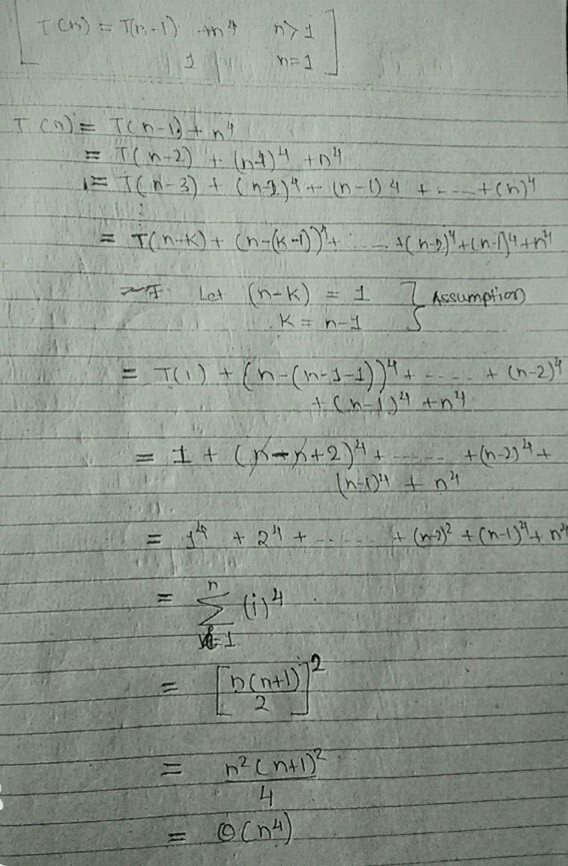 T(n) = T(n-1) + n⁴ n>1
1 n=1
T(n) = T(n-1) + n⁴
= T(n-2) + (n-1)⁴ + n⁴
= T(n-3) + (n-2)⁴ + (n-1)4 + ---- + (n)⁴
⋮
= T(n-k) + (n-(k-1))⁴ + ..... + (n-2)⁴ + (n-1)⁴ + n⁴
Let (n-k) = 1 } Assumption
k = n-1
= T(1) + (n-(n-1-1))⁴ + ..... + (n-2)⁴
+ (n-1)⁴ + n⁴
= 1 + (n-n+2)⁴ + ...... + (n-2)⁴ +
(n-1)⁴ + n⁴
= 1⁴ + 2⁴ + ...... + (n-2)² + (n-1)⁴ + n⁴
= n
Σ (i)⁴
i=1
= [n(n+1)/2]²
= n²(n+1)²/4
= Θ(n⁴)